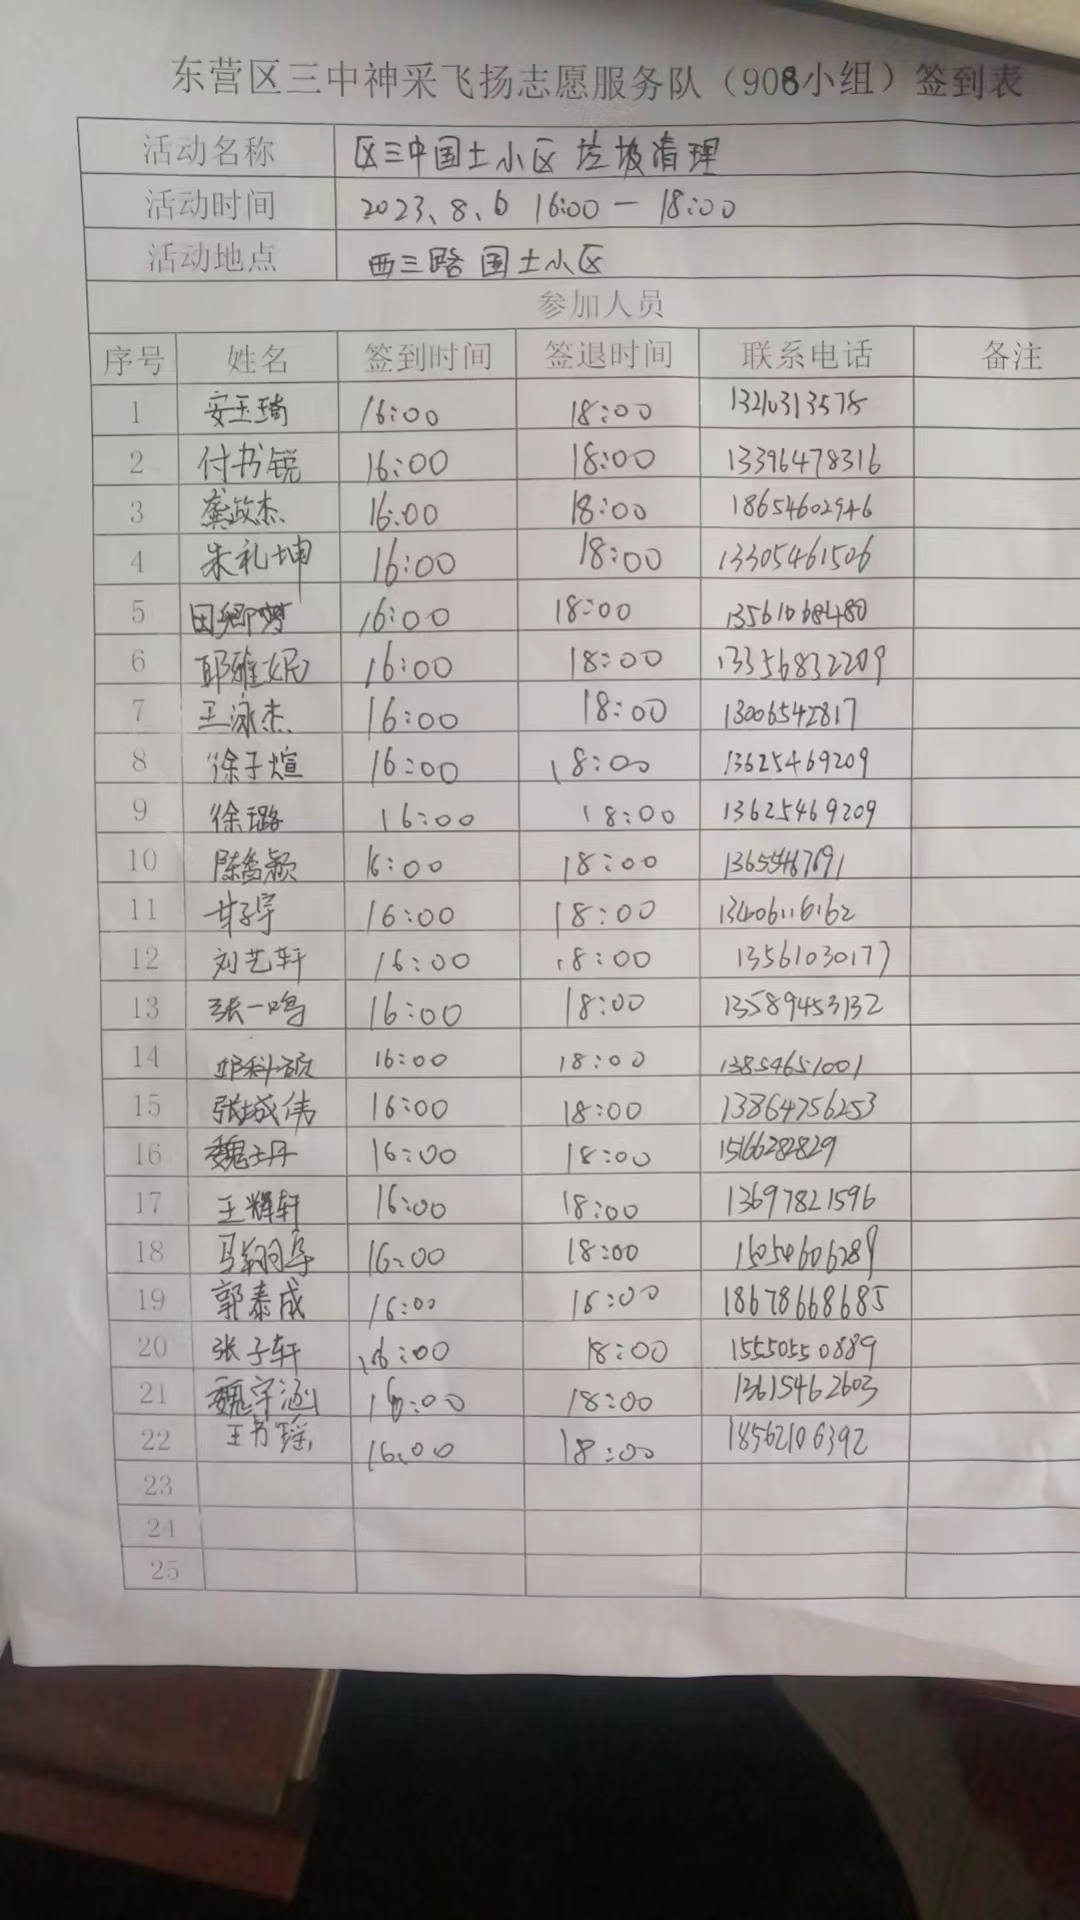 东营区三中神采飞扬志愿服务队（908小组）签到表
活动名称 区三中国土小区 垃圾清理
活动时间 2023、8、6 16:00 — 18:00
活动地点 西三路 国土小区
参加人员
序号 姓名 签到时间 签退时间 联系电话 备注
1 安玉琦 16:00 18:00 13210313578
2 付书锐 16:00 18:00 13396478316
3 龚政杰 16:00 18:00 18654602946
4 朱礼坤 16:00 18:00 13305461506
5 田卿梦 16:00 18:00
6 耶雅妮 16:00 18:00 13356832209
7 王泳杰 16:00 18:00 13006542817
8 徐子煊 16:00 18:00 13625469209
9 徐璐 16:00 18:00 13625469209
10 16:00 18:00
11 甘子宇 16:00 18:00 13406116162
12 刘艺轩 16:00 18:00 13561030177
13 张一鸣 16:00 18:00 13589453132
14 16:00 18:00 13854651001
15 张城伟 16:00 18:00 13864756253
16 16:00 18:00
17 王辉轩 16:00 18:00 13697821596
18 16:00 18:00 15054606289
19 郭泰成 16:00 18:00 18678668685
20 张子轩 16:00 18:00 15550550889
21 魏宇涵 16:00 18:00 13615462603
22 王书瑶 16:00 18:00 18562106392
23
24
25